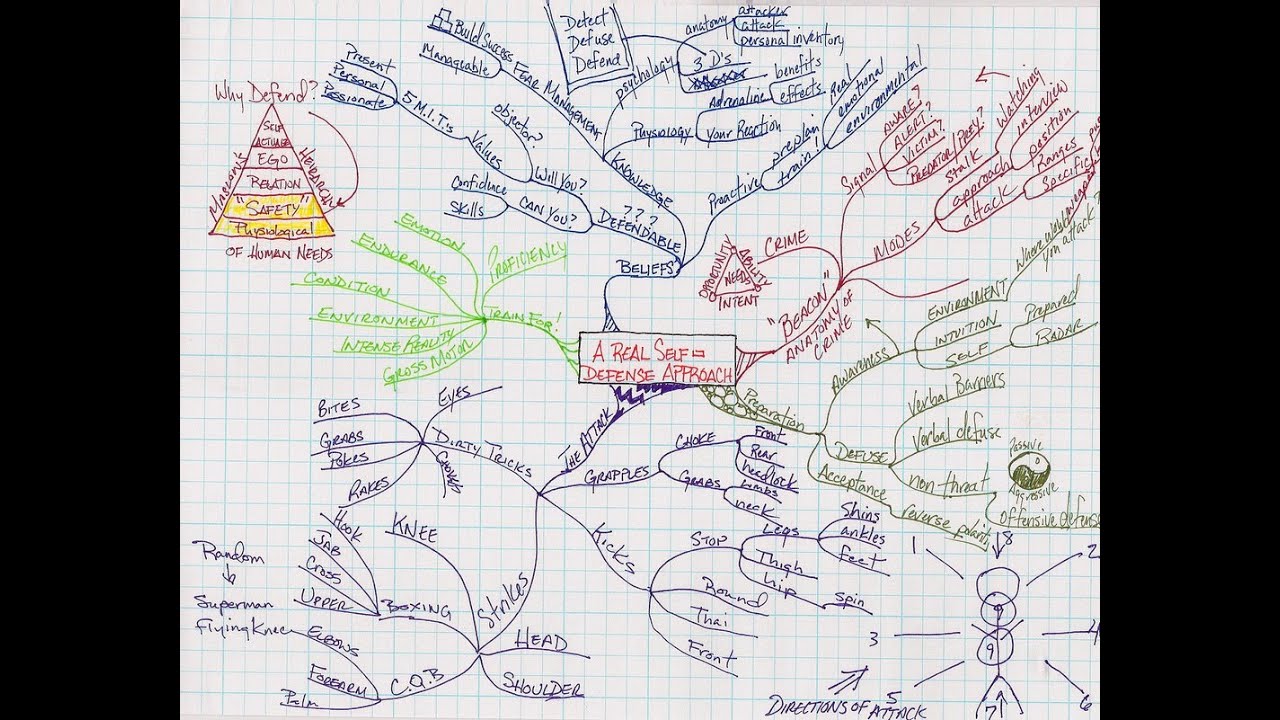 A REAL SELF-
DEFENSE APPROACH
BELIEFS
DEFENDABLE
? ? ?
Will You?
objector?
CAN YOU?
Confidence
SKills
Values
5 M.I.T.'s
Present
Personal
Passionate
KNOWLEDGE
FEAR MANAGEMENT
Build Success
Manageable
psychology
anatomy
attacker
attack
personal inventory
3 D's
Detect
Defuse
Defend
Physiology
Adrenaline
benefits
effects
your Reaction
Proactive
preplan
train!
Real
emotional
environmental
Why Defend?
SELF
ACTUALIZE
EGO
RELATION
"SAFETY"
Physiological
HIERARCHY
OF HUMAN NEEDS
"BEACON"
ANATOMY OF
CRIME
CRIME
OPPORTUNITY
ABILITY
NEEDS
INTENT
Signal
AWARE?
ALERT?
VICTIM?
PREDATOR/PREY?
MODES
stalk
watching
approach
interview
position
attack
Ranges
Specific
Preparation
Awareness
ENVIRONMENT
INTUITION
SELF
Prepared
RADAR
DEFUSE
Verbal Barriers
Verbal defuse
non-threat
Passive
Aggressive
offensive defense
Acceptance
THE ATTACK
GRAPPLES
CHOKE
Front
Rear
headlock
GRABS
Limbs
neck
KICKS
STOP
Legs
Shins
ankles
feet
Thigh
hip
spin
Round
Thai
Front
Strikes
HEAD
SHOULDER
C.Q.B
ELBOWS
FOREARM
Palm
BOXING
HOOK
JAB
CROSS
UPPER
KNEE
Random
Superman
Flying Knee
DIRTY TRICKS
EYES
BITES
GRABS
Pokes
RAKES
TRAIN FOR!
PROFICIENCY
EMOTION
ENDURANCE
CONDITION
ENVIRONMENT
INTENSE REALITY
GROSS MOTOR
DIRECTIONS OF ATTACK
1
2
3
4
5
6
7
8
9
9